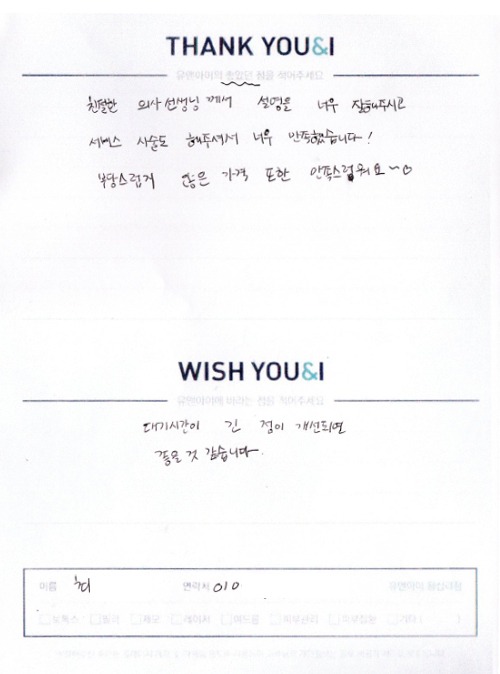 THANK YOU&I
유앤아이의 좋았던 점을 적어주세요
친절한 의사선생님께서 설명을 너무 잘해주시고
서비스 시술도 해주셔서 너무 만족했습니다!
부담스럽지 않은 가격 또한 만족스러워요~♡
WISH YOU&I
유앤아이에 바라는 점을 적어주세요
대기시간이 긴 점이 개선되면
좋을 것 같습니다.
이름 최 연락처 010
보톡스 필러 제모 레이저 여드름 피부관리 기타 ( )